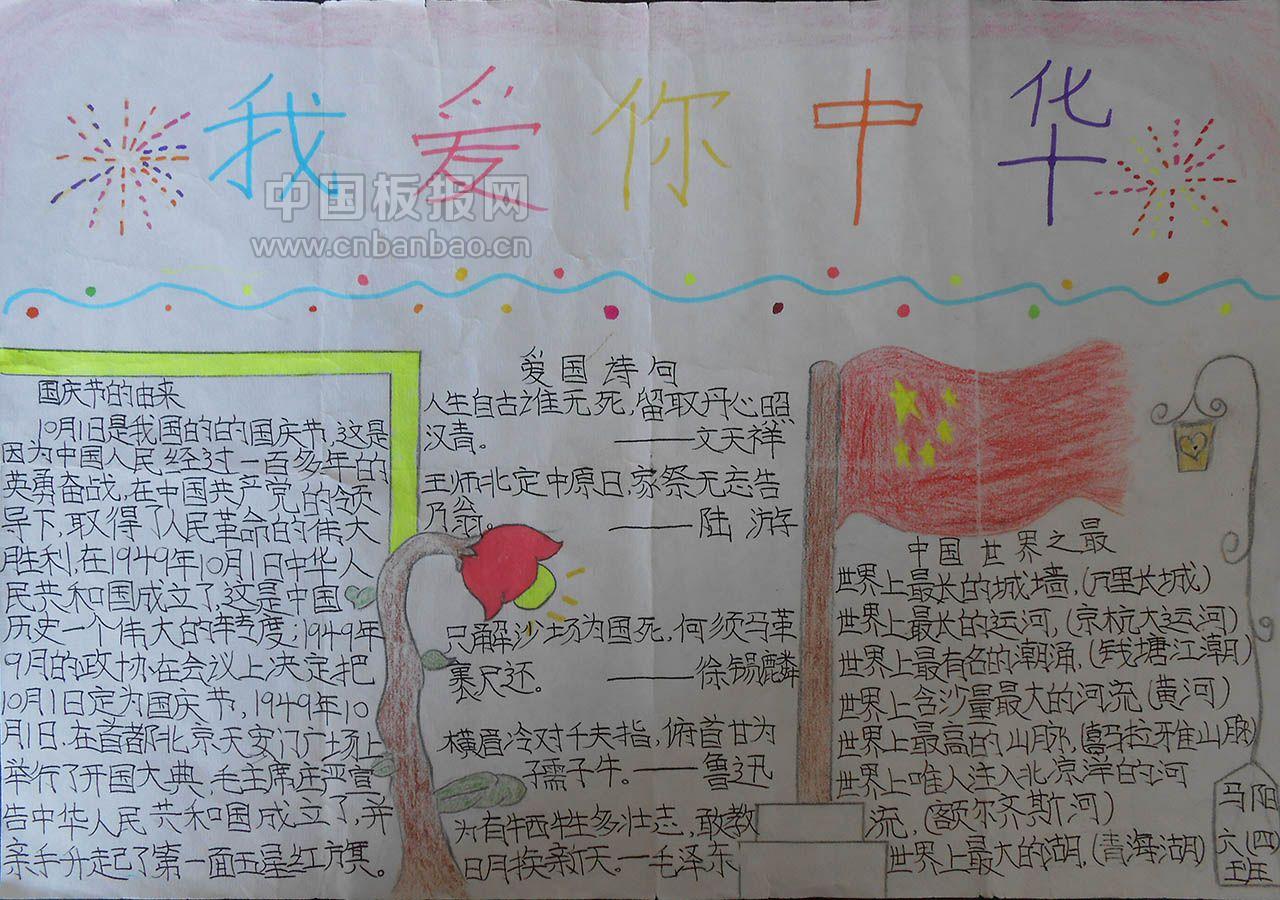 我爱你中华
中国板报网
www.cnbanbao.cn
国庆节的由来
10月1日是我国的的国庆节,这是
因为中国人民经过一百多年的
英勇奋战,在中国共产党的领
导下,取得了人民革命的伟大
胜利,在1949年10月1日中华人
民共和国成立了,这是中国
历史一个伟大的转专度;1949年
9月的政协在会议上决定把
10月1日定为国庆节,1949年10
月1日.在首都北京天安门广场上
举行了开国大典,毛主席庄严宣
告中华人民共和国成立了,并
亲手升起了第一面五星红旗。
爱国诗句
人生自古谁无死,留取丹心照
汉青。——文天祥
王师北定中原日,家祭无忘告
乃翁。——陆游
只解沙场为国死,何须马革
裹尺还。——徐锡麟
横眉冷对千夫指,俯首甘为
孺子牛。——鲁迅
为有牺牲多壮志,敢教
日月换新天。—毛泽东
中国世界之最
世界上最长的城墙,(万里长城)
世界上最长的运河,(京杭大运河)
世界上最有名的潮涌,(钱塘江潮)
世界上含沙量最大的河流(黄河)
世界上最高的山脉,(喜马拉雅山脉)
世界上唯入注入北京洋的河
流,(额尔齐斯河)
世界上最大的湖,(青海湖)
马阳
六(四)
班